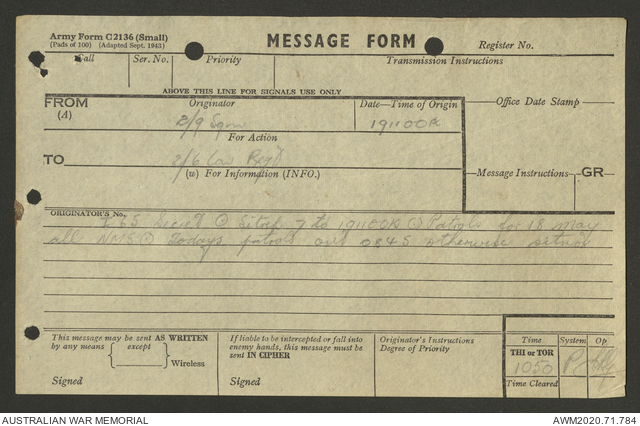 Army Form C2136 (Small)
(Pads of 100) (Adapted Sept. 1943)
MESSAGE FORM
Register No.
Call
Ser. No.
Priority
Transmission Instructions
ABOVE THIS LINE FOR SIGNALS USE ONLY
FROM
(A)
Originator
Date—Time of Origin
Office Date Stamp
2/9 Sqn
191100K
For Action
TO
2/6 Cav Regt
(w) For Information (INFO.)
Message Instructions
GR
ORIGINATOR'S No.
I 65 Secret Sitrep 7 to 191100K Patrols for 18 May
all Todays patrols out 0845 otherwise
This message may be sent AS WRITTEN
by any means except
Wireless
Signed
If liable to be intercepted or fall into
enemy hands, this message must be
sent IN CIPHER
Signed
Originator's Instructions
Degree of Priority
Time
System
Op
THI or TOR
1050
Time Cleared
AUSTRALIAN WAR MEMORIAL
AWM2020.71.784